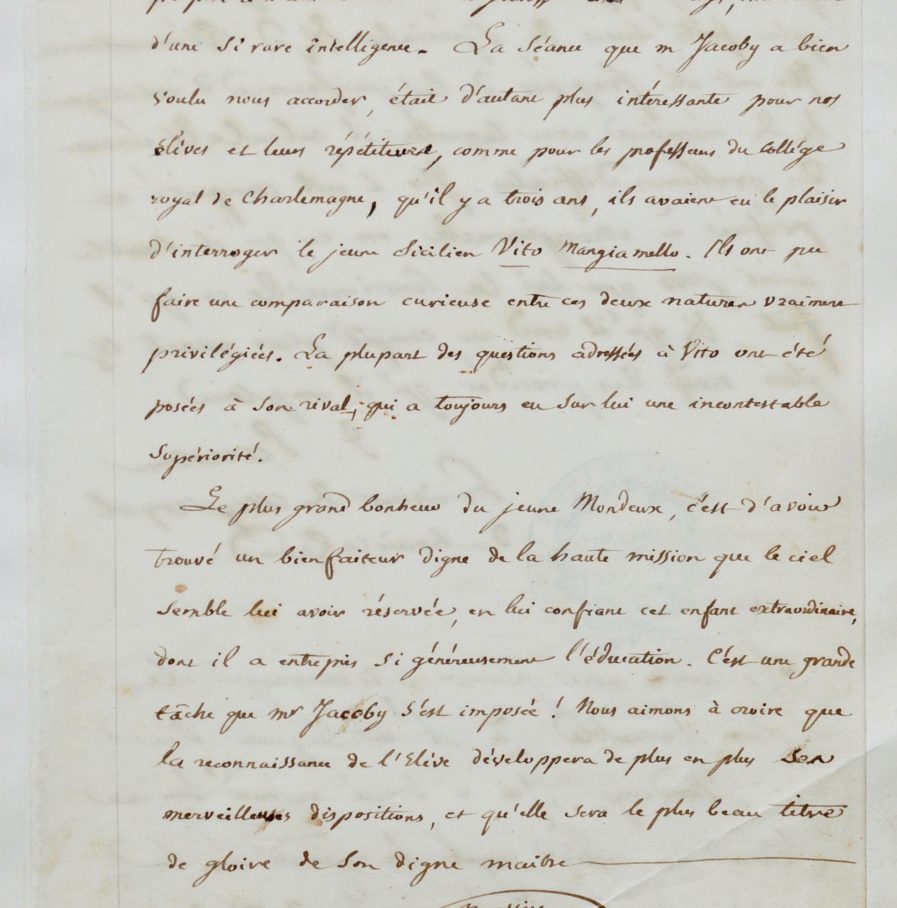 d'une si rare intelligence. La Séance que mr Jacoby a bien
voulu nous accorder, était d'autant plus intéressante pour nos
élèves et leurs répétiteurs, comme pour les professeurs du collége
royal de Charlemagne, qu'il y a trois ans, ils avaient eu le plaisir
d'interroger le jeune Sicilien Vito Mangiamello. Ils ont pu
faire une comparaison curieuse entre ces deux natures vraiment
privilégiées. La plupart des questions adressées à Vito ont été
posées à son rival, qui a toujours eu sur lui une incontestable
Supériorité.
Le plus grand bonheur du jeune Mondeux, c'est d'avoir
trouvé un bienfaiteur digne de la haute mission que le ciel
semble lui avoir réservée, en lui confiant cet enfant extraordinaire,
dont il a entrepris si généreusement l'éducation. C'est une grande
tâche que mr Jacoby s'est imposée ! Nous aimons à croire que
la reconnaissance de l'Elève développera de plus en plus ses
merveilleuses dispositions, et qu'elle sera le plus beau titre
de gloire de son digne maitre